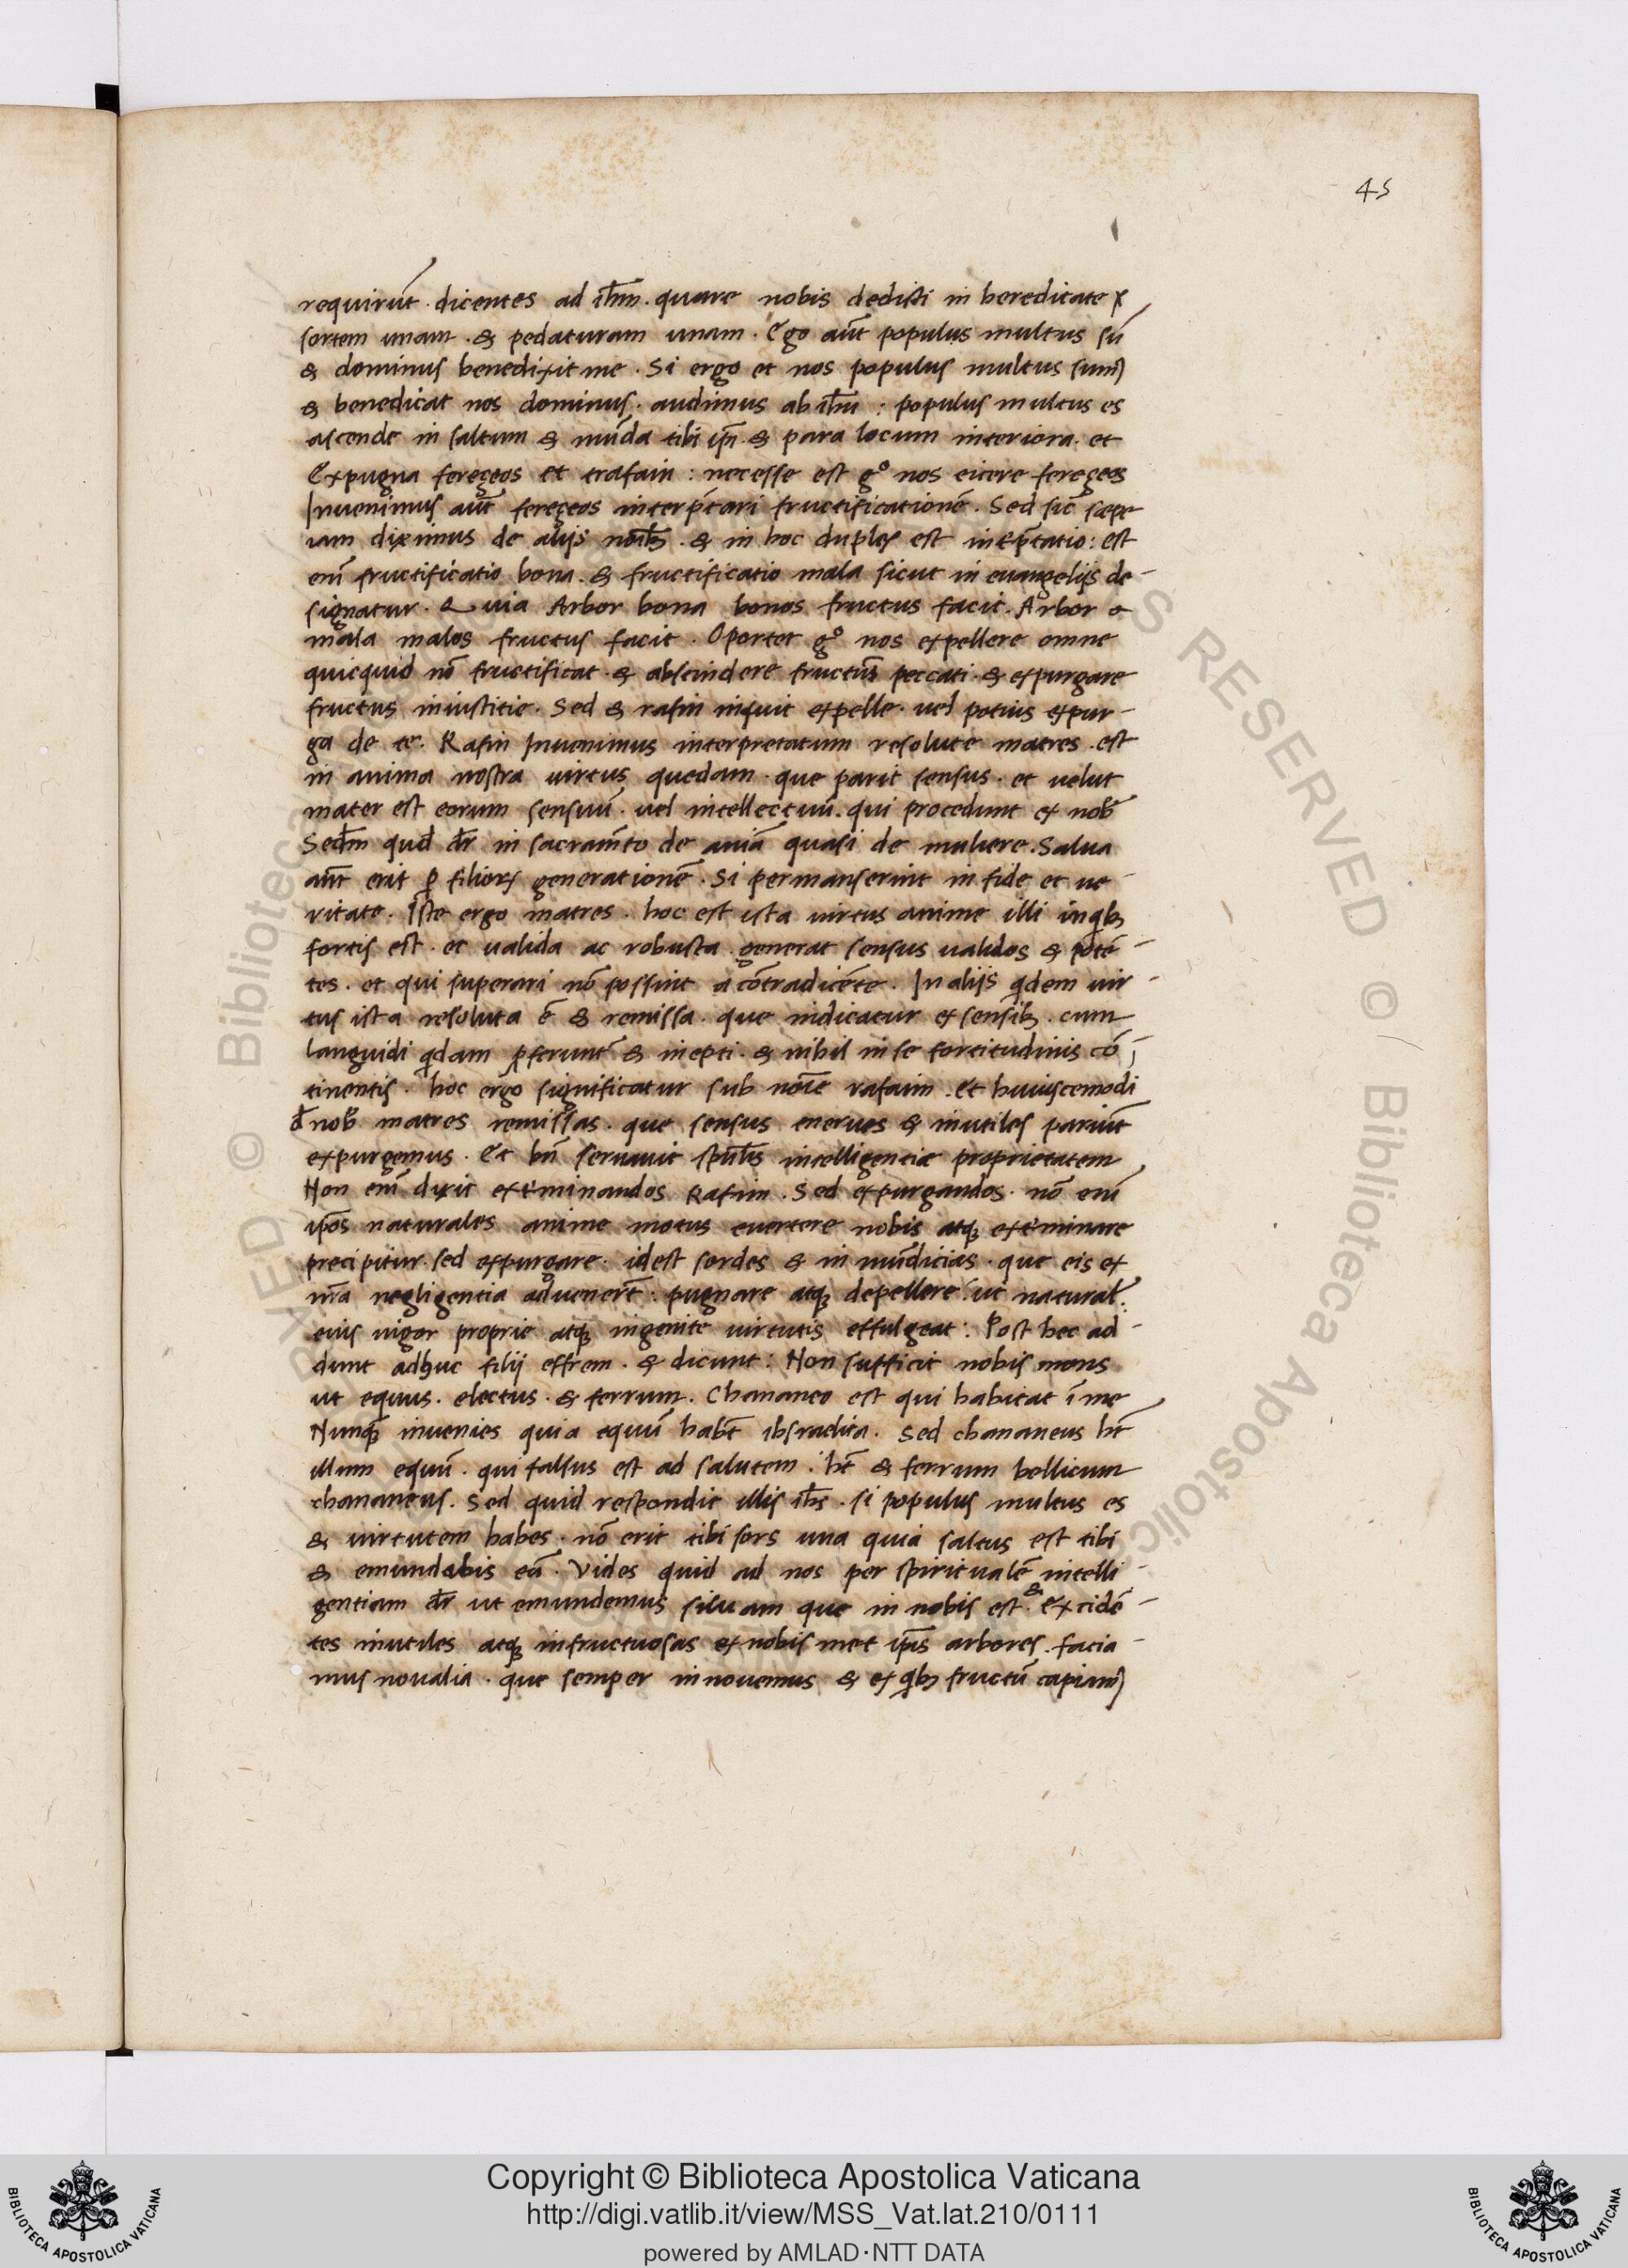 45
requirūt. dicentes ad ih̄m. quare nobis dedisti in hereditatē
sortem unam. & pedaturam unam. Ego aūt populus multus sū
& dominus benedixit me. Si ergo et nos populus multus sum9
& benedicat nos dominus. audimus ab ih̄u: populus multus es
ascende in saltum & mūda tibi ip̄i. & para locum interiora. et
Expugna feregeos et trafain: necesse est g° nos eicere feregeos
Inuenimus aūt feregeos interp̄tari fructificationē. Sed sic̄ sæpe
iam diximus de alijs noībꝫ. & in hoc duplex est int̄p̄tatio: est
enī fructificatio bona. & fructificatio mala sicut in euangelijs de-
signatur. Quia Arbor bona bonos fructus facit. Arbor
mala malos fructus facit. Oportet g° nos expellere omne
quicquid nō fructificat. & abscindere fructus peccati. & expurgare
fructus iniustitie. Sed & rafin inquit expelle. uel potius expur-
ga de te. Rafin Inuenimus interpretatum resolute matres. est
in anima nostra uirtus quedam. que parit sensus. et uelut
mater est eorum sensuū. uel intellectuū. qui procedunt ex nob̄
Sed̄m qud d̄r in sacram̄to de anīa quasi de muliere. Salua
aūt erit ꝑ filioꝝ generationē. Si permanserint in fide et ue-
ritate. Iste ergo matres. hoc est ista uirtus anime illi inqbꝫ
fortis est. et ualida ac robusta. generat sensus ualidos & potē-
tes. et qui superari nō possint a cōtradicēte. In alijs qdem uir-
tus ista resoluta ē & remissa. que indicatur ex sensibꝫ. cum
languidi qdam ꝓferunt̄ & inepti. & nihil in se fortitudinis cō-
tinentis. hoc ergo significatur sub noīe rafaim. et huiuscemodi
d̄ nob̄ matres remissas. que sensus enerues & inutiles pariūt
expurgemus. Et bn̄ seruauit sp̄ulis intelligentiæ proprietatem
Non enī dixit ext̄minandos Rafim. Sed expurgandos. nō enī
ip̄os naturales anime motus euertere nobis atqꝫ ext̄minare
precipitur. sed expurgare. idest sordes & in mūdicias. que eis ex
nr̄a negligentia aduener̄t. pugnare atqꝫ depellere. ut natural̄.
eius uigor proprie atqꝫ ingenite uirtutis effulgeat: Post hec ad-
dunt adhuc filij effrem. & dicunt: Non sufficit nobis mons
ut equus. electus. & ferrum. Chananeo est qui habitat ī me
Nunqꝫ inuenies quia equū hab̄t ihsraelita. Sed chananeus h̄t
illum equū. qui falsus est ad salutem. h̄t & ferrum bellicum
chananeus. Sed quid respondit illis ih̄s. si populus multus es
& uirtutem habes. nō erit tibi sors una quia saltus est tibi
& emundabis eū. Vides quid ad nos per spiritualē intelli-
gentiam d̄r ut emundemus siluam que in nobis est. & excidē-
tes inutiles atqꝫ infructuosas ex nobis met ip̄is arbores. facia-
mus noualia. que semper innouemus & ex qbꝫ fructū capiam9
Copyright © Biblioteca Apostolica Vaticana
http://digi.vatlib.it/view/MSS_Vat.lat.210/0111
powered by AMLAD·NTT DATA
BIBLIOTECA APOSTOLICA VATICANA
BIBLIOTECA APOSTOLICA VATICANA